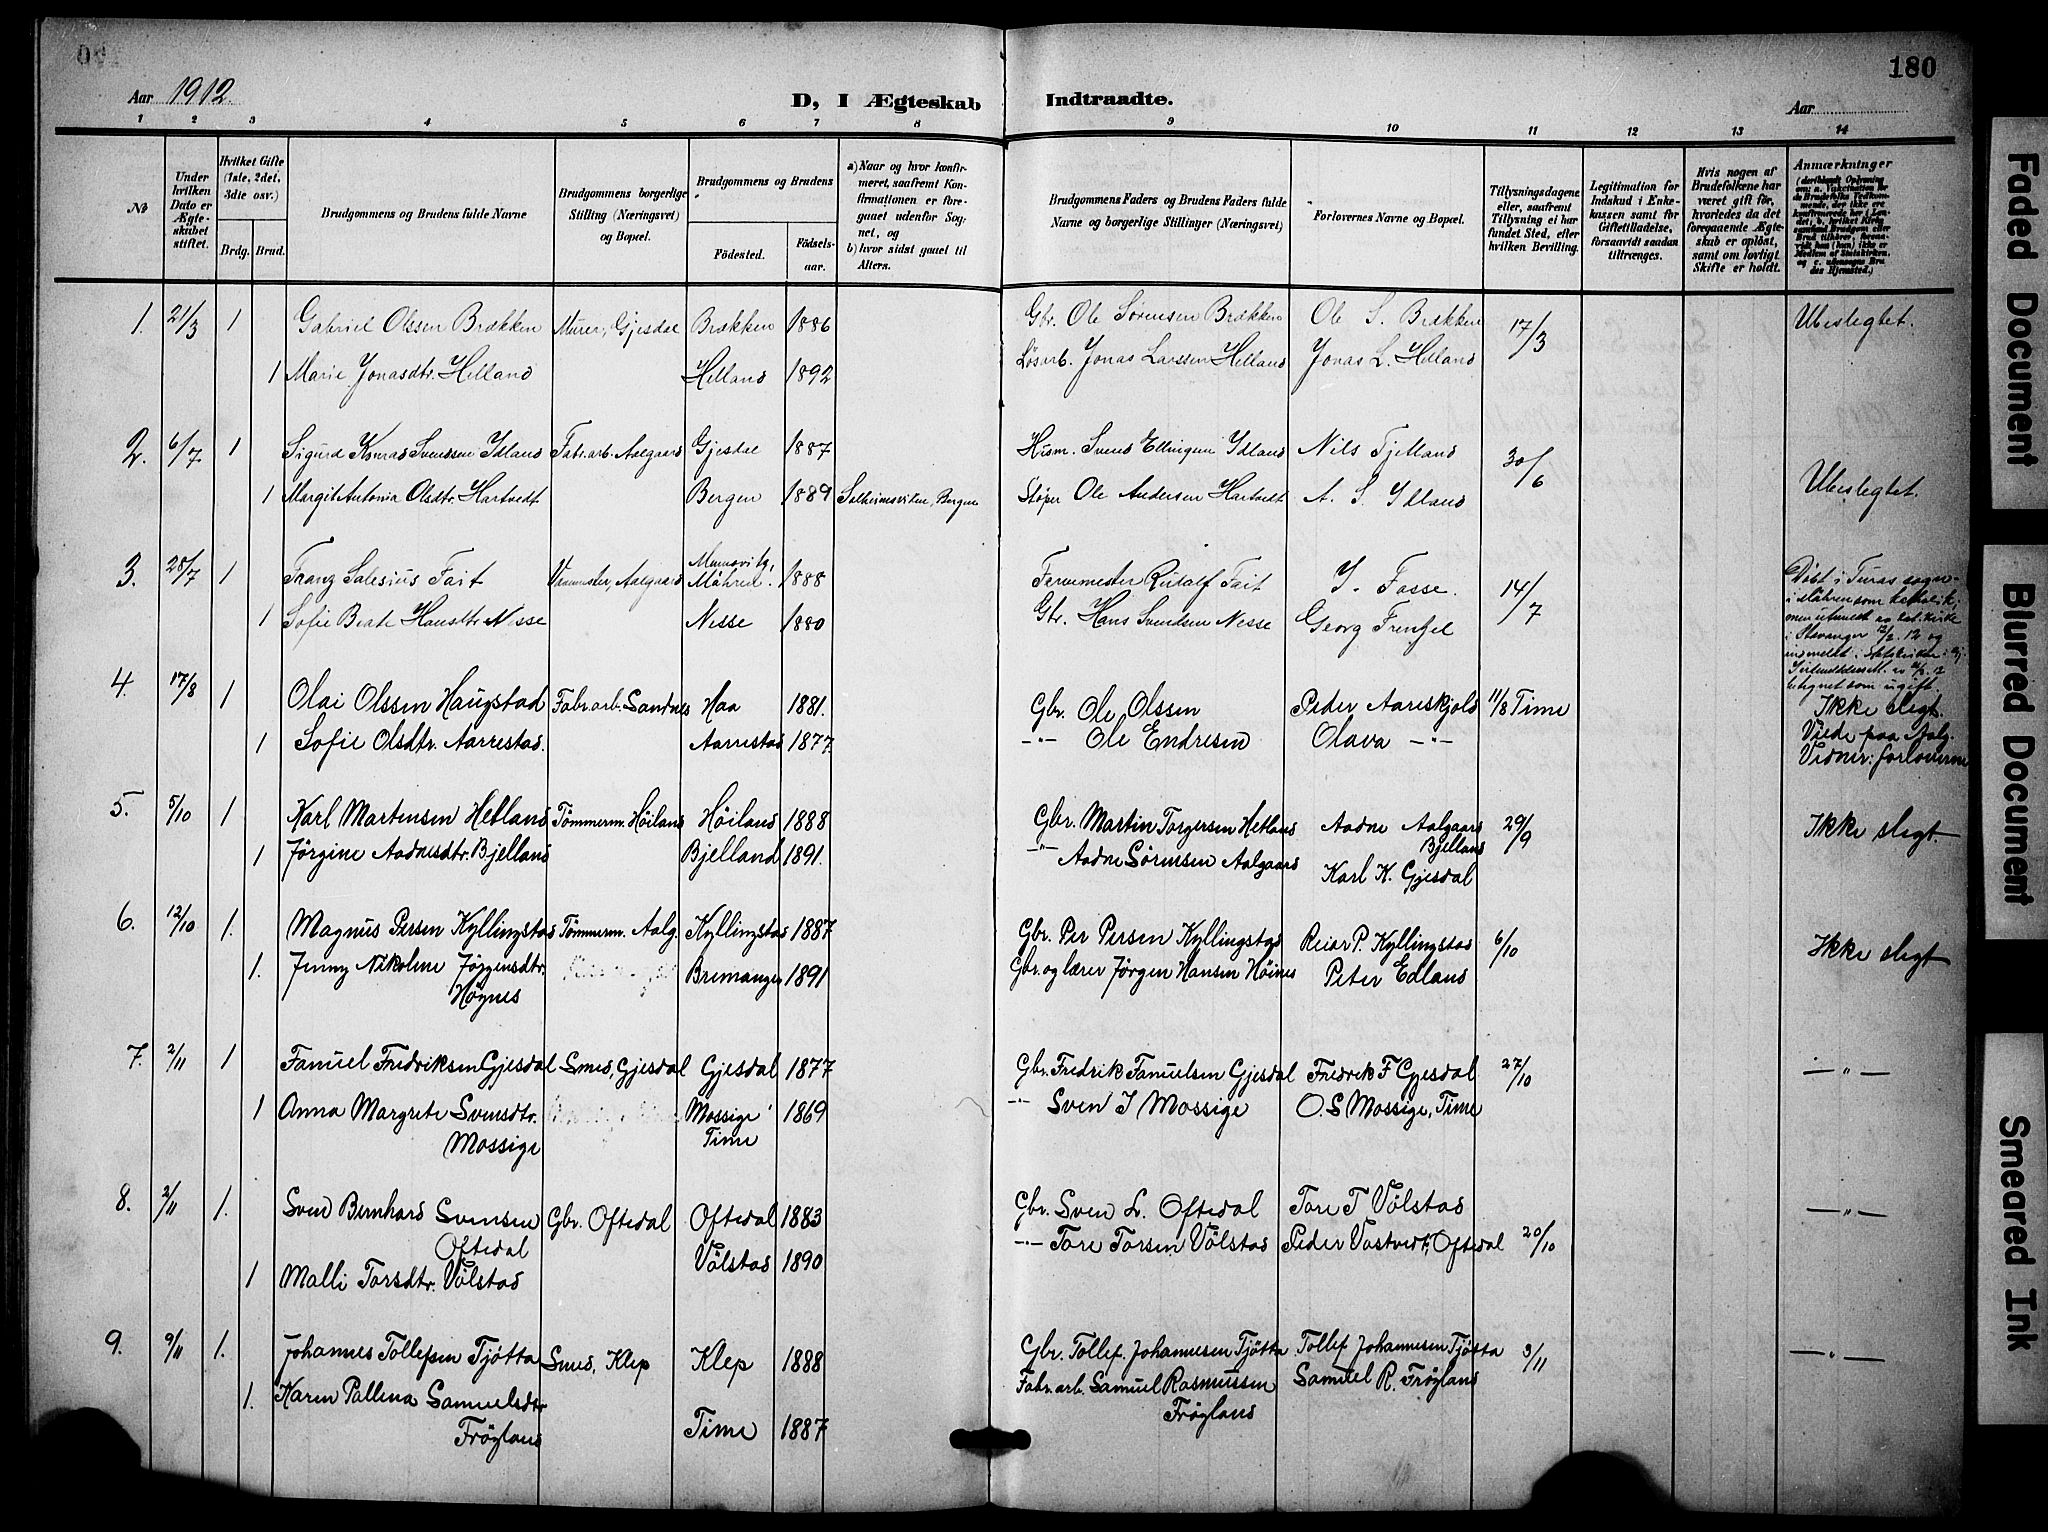 180
Aar 1912.
D, I Ægteskab Indtraadte.
Aar
1 2 3 4 5 6 7 8 9 10 11 12 13 14
No
Under hvilken Dato er Ægteskabet stiftet.
Hvilket Gifte (1ste, 2det, 3die osv.)
Brdg. Brud.
Brudgommens og Brudens fulde Navne
Brudgommens borgerlige Stilling (Næringsvei) og Bopæl.
Brudgommens og Brudens
Fødested. Fødselsaar.
a) Naar og hvor konfirmeret, saafremt Konfirmationen er foregaaet udenfor Sognet, og
b) hvor sidst gaaet til Alters.
Brudgommens Faders og Brudens Faders fulde Navne og borgerlige Stillinger (Næringsvei)
Forlovernes Navne og Bopæl.
Tillysningsdagene eller, saafremt Tillysning ei har fundet Sted, efter hvilken Bevilling.
Legitimation for Indskud i Enkekassen samt for Giftetilladelse, forsaavidt saadan tiltrænges.
Hvis nogen af Brudefolkene har været gift før, hvorledes da det foregaaende Ægteskab er opløst, samt om lovligt Skifte er holdt.
Anmærkninger
1. 21/3 1 Gabriel Olssen Brækken Murer, Gjesdal Brækken 1886 Gbr. Ole Sørensen Brækken Ole S. Brækken 17/3 Ubeslegtet.
1 Marie Jonasdtr. Helland Helland 1892 Løsarb. Jonas Larssen Helland Jonas L. Helland
2. 6/7 1 Sigurd Konrad Svendsen Idland Fabr.arb. Aalgaard Gjesdal 1887 Husm. Svend Ellingsen Idland Nils Fjelland 30/6 Ubeslegtet.
1 Margit Antonia Olsdtr. Hartvedt Bergen 1889 Solheimsviken, Bergen Støper Ole Andersen Hartvedt A. S. Idland
3. 28/7 1 Franz Salesius Fait Aalgaard Mähren. 1888 Farvemester Rudolf Fait I. Fosse. 14/7
1 Sofie Beate Hansdtr. Nesse Nesse 1880 Gbr. Hans Svendsen Nesse Georg Frenzel
Døbt i Turas sogn
i Mähren som katholik,
men utmeldt av kat. kirke
i Stavanger 12/2. 12 og
indmeldt i statskirken
betegnet som ugift.
4. 17/8 1 Olai Olssen Haugstad Fabr.arb. Sandnes Haa 1881. Gbr. Ole Olssen Peder Aareskjold 11/8 Time Ikke slegt.
1 Sofie Olsdtr. Aarrestad. Aarrestad 1877. -"- Ole Endresen Olava -"- Viede paa Aalg.
Vidner: forloverne
5. 5/10 1 Karl Martensen Hetland Tømmerm. Höiland Höiland 1888 Gbr. Martin Torgersen Hetland Aadne Aalgaard Bjelland 29/9 Ikke slegt.
1 Jørgine Aadnesdtr. Bjelland Bjelland 1891. -"- Aadne Sørensen Aalgaard Karl K. Gjesdal
6. 12/10 1. Magnus Persen Kyllingstad Tømmerm. Aalg. Kyllingstad 1887 Gbr. Per Persen Kyllingstad Reiar P. Kyllingstad 6/10 Ikke slegt
1. Jenny Nikoline Jörgensdtr. Höynes Bremanger 1891 Gbr. og lærer Jörgen Hansen Höines Peter Edland
7. 2/11 1 Fanuel Fredriksen Gjesdal Smed, Gjesdal Gjesdal 1877 Gbr. Fredrik Fanuelsen Gjesdal Fredrik F Gjesdal 27/10 -"-
1 Anna Margrete Svensdtr. Mossige Mossige Time 1869 -"- Sven I Mossige O. S Mossige, Time
8. 2/11 1. Sven Bernhard Svensen Oftedal Gbr. Oftedal Oftedal 1883 Gbr. Sven L. Oftedal Tore T Völstad 20/10 -"-
1 Malli Torsdtr. Völstad Völstad 1890 -"- Tore Torsen Völstad Peder Vastvedt, Oftedal
9. 9/11 1. Johannes Tollefsen Tjötta Smed, Klep Klep 1888 Gbr. Tollef Johannesen Tjötta Tollef Johannesen Tjötta 3/11 -"-
1. Karen Pallena Samuelsdtr Fröyland Time 1887 Fabr.arb. Samuel Rasmussen Fröyland Samuel R. Fröyland
Faded Document
Blurred Document
Smeared Ink